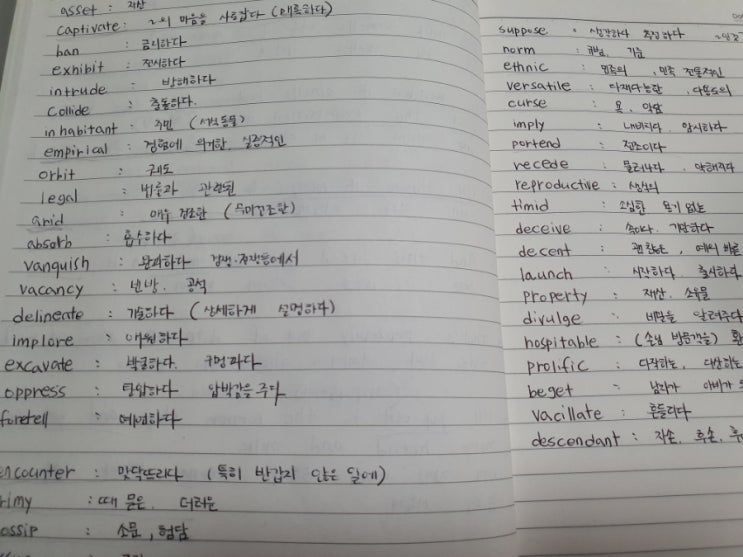 asset : 재산
captivate : ~의 마음을 사로잡다 (매혹하다)
ban : 금지하다
exhibit : 전시하다
intrude : 방해하다
collide : 충돌하다.
inhabitant : 주민 (서식동물)
empirical : 경험에 의거한, 실증적인
orbit : 궤도
legal : 법률과 관련된
arid : 매우 건조한 (무미건조한)
absorb : 흡수하다
vanquish : 완파하다 경쟁·전쟁등에서
vacancy : 빈방, 공석
delineate : 기술하다 (상세하게 설명하다)
implore : 애원하다
excavate : 발굴하다. 구멍파다
oppress : 탄압하다 압박감을 주다
foretell : 예언하다
encounter : 맞닥뜨리다 (특히 반갑지 않은 일에)
rimy : 때 묻은, 더러운
ossip : 소문, 험담
suppose : 생각하다 추정하다
norm : 규범, 기준
ethnic : 민족의, 민족 전통적인
versatile : 다재다능한, 다용도의
curse : 욕, 악담
imply : 내비치다, 암시하다
portend : 전조이다
recede : 물러나다, 약해지다
reproductive : 생식의
timid : 소심한 용기 없는
deceive : 속이다, 기만하다
decent : 괜찮은, 예의 바른
launch : 시작하다, 출시하다
property : 재산, 소유물
divulge : 비밀을 알려주다
hospitable : (손님 방문객을) 환
prolific : 다작하는, 다산하는
beget : 남자가 아비가
vacillate : 흔들리다
descendant : 자손, 후손,